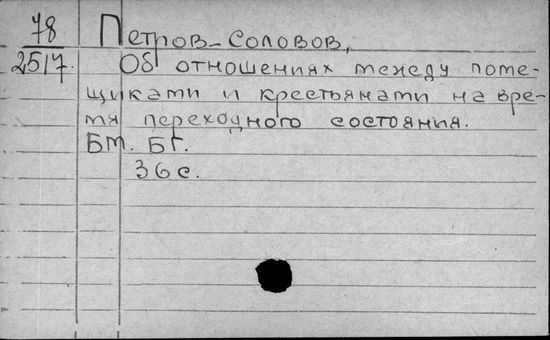 78 Петров-Соловов,
2517. Об отношениях между поме-
щиками и крестьянами на вре-
мя переходного состояния.
Бм. Бг.
36 с.